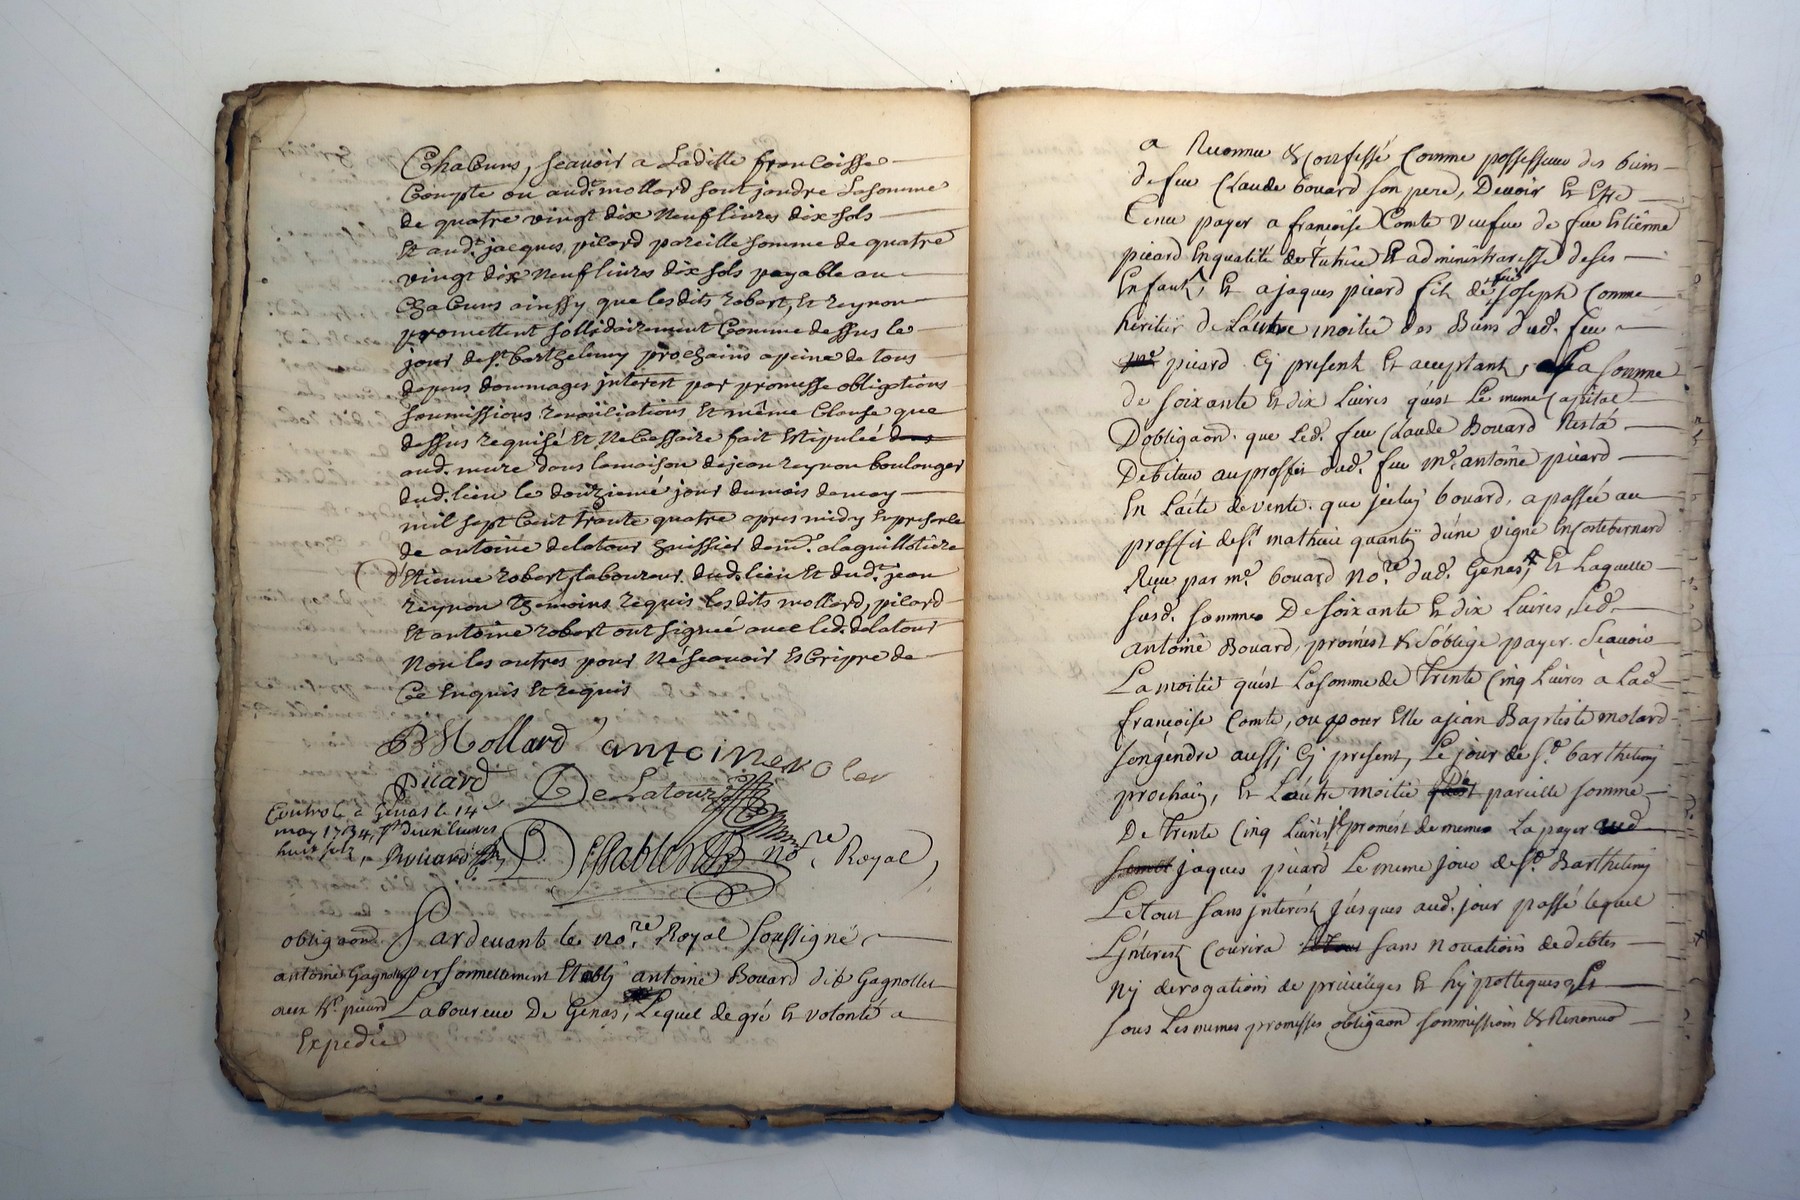 Chacuns, scauoir a Laditte francoisse
Compte ou aud.t mollard sont jandre Lasomme
de quatre vingt dix neuf liures dix sols
Et aud.t jacques picard pareille somme de quatre
vingt dix neuf liures dix sols payable au
Chacuns ainssy que lesdits robert, Et reynon
promettent sollidairement Comme dessus le
jour de s.t barthelemy prochains a peine de tous
depens dommages jnterest par promesse obligations
soumissions renonciations Et même Clause que
dessus requisé Et Necessaire fait Estipulée dans
aud. mure dans lamaison dejean reynon boulanger
dud. lieu le douziemé jour dumois demay
mil sept Cent trante quatre apres midy En presence
de antoine delatour huissier dem.t alaguillotiere
Etienne robert, laboureur dud. lieu Et dud.t jean
reynon themoins requis lesdits mollard, picard
Et antoine robert ont signeé auec led. delatour
Non les autres pour Ne scauoir Escripre de
Ce Enquis Et requis
B Mollard antoine
picard DeLatour
Controlé a Genas le 14
may 1734,
huit solz
no.re Royal
obligaon Pardeuant le no.re Royal soussigné
antoine Gagnollet personnellement Etably antoine Bouard dit Gagnollet
aux h.rs picard Laboureur De Genas, Lequel de gré Et volonté a
Expedié
a Reconnu & confessé Comme possesseur des biens
de feu Claude bouard son pere, Deuoir Et Estre
tenu payer a francoise Comte veufue de feu Etienne
picard En qualité de tutrice Et administraresse de ses
Enfants, Et a jaques picard fils de feu joseph Comme
heritier De Lautre moitié des Biens dud. feu
m.e picard Cy present Et acceptant, La somme
de soixante Et dix Liures qu'est Le meme Capital
D'obligaon. que Led. feu Claude Bouard Resta
Debiteur au proffit dud. feu m.e antoine picard
En L'acte de vente que jceluy bouard, a passée au
proffit de s.r mathieu quantin d'une vigne En Costebernard
Reçu par m.e bouard No.re dud. Genas, Et Laquelle
susd. somme De soixante Et dix Liures, Led.
antoine Bouard, promest & s'oblige payer Scauoir
La moitié qu'est La somme de Trente Cinq Liures a Lad.
francoise Comte, ou pour Elle a jean Baptiste molard
son gendre aussi, Cy present, Le jour de s.t barthelemy
prochain, Et L'autre moitié De pareille somme
De Trente Cinq Liures promest de meme La payer aud
jaques picard Le meme jour de s.t Barthelemy
Le tour sans jnterest jusques aud. jour passé lequel
L'jnterest Courira sans nouation de debtes
ny derogation de priuileges Et hypotteques Et
sous Les memes promesses obligaon sommissions & Renonco